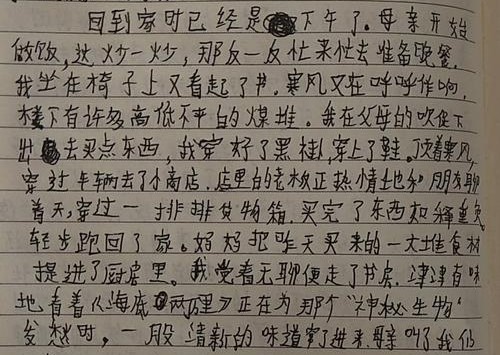 回到家时已经是下午了。母亲开始
做饭,这炒一炒,那反一反忙来忙去准备晚餐。
我坐在椅子上又看起了书,寒风又在呼呼作响,
楼下有许多高低不平的煤堆。我在父母的吹促下
出去买点东西,我穿好了黑袜,穿上了鞋。顶着寒风,
穿过车辆去了小商店,店里的老板正热情地和朋友聊
着天,穿过一排排货物箱,买完了东西如释重负
轻步跑回了家。妈妈把昨天买来的一大堆食材
提进了厨房里。我觉着无聊便走了书房,津津有味
地看着《海底两万里》正在为那个“神秘生物”
发愁时,一股清新的味道穿了进来,母亲叫了我们